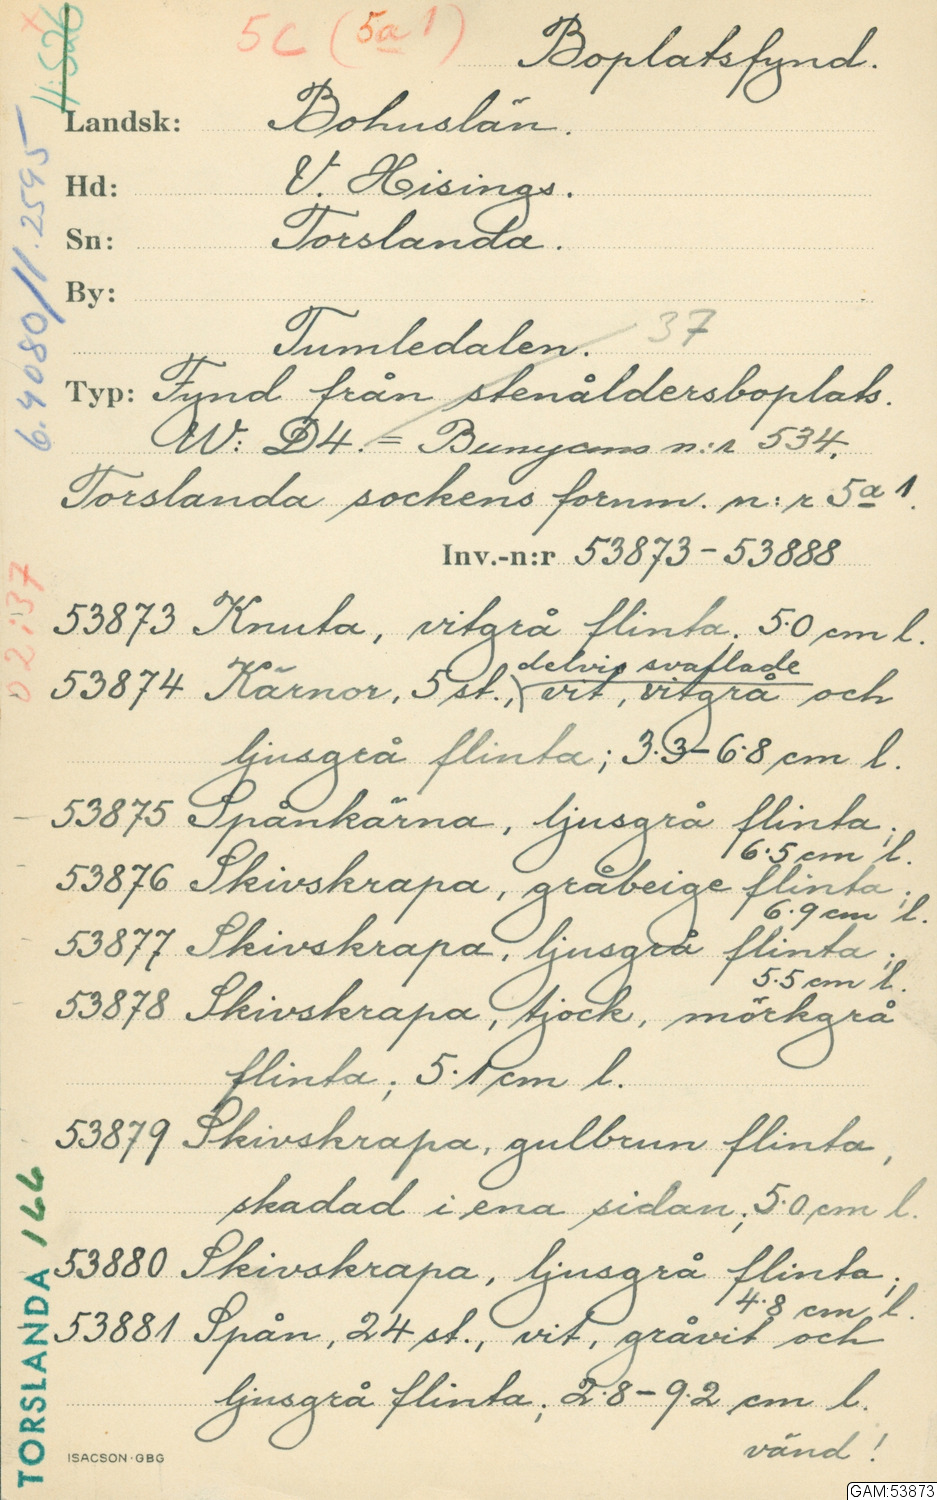 5c (5a 1)
Boplatsfynd.
Landsk: Bohuslän.
Hd: V. Hisings.
Sn: Torslanda.
By:
Tumledalen. 37
Typ: Fynd från stenåldersboplats.
W: D4. = Bunycans n:r 534.
Torslanda sockens fornm. n:r 5a 1.
Inv.-n:r 53873-53888
53873 Knuta, vitgrå flinta. 5.0 cm l.
delvis svaflade
53874 Kärnor, 5 st., vit, vitgrå och
ljusgrå flinta; 3.3-6.8 cm l.
53875 Spånkärna, ljusgrå flinta;
6.5 cm l.
53876 Skivskrapa, gråbeige flinta;
6.9 cm l.
53877 Skivskrapa, ljusgrå flinta;
5.5 cm l.
53878 Skivskrapa, tjock, mörkgrå
flinta; 5.1 cm l.
53879 Skivskrapa, gulbrun flinta,
skadad i ena sidan; 5.0 cm l.
53880 Skivskrapa, ljusgrå flinta;
4.8 cm l.
53881 Spån, 24 st., vit, gråvit och
ljusgrå flinta; 2.8-9.2 cm l.
vänd!
ISACSON·GBG
TORSLANDA 166
02:37
6.4080/11.2595
GAM:53873